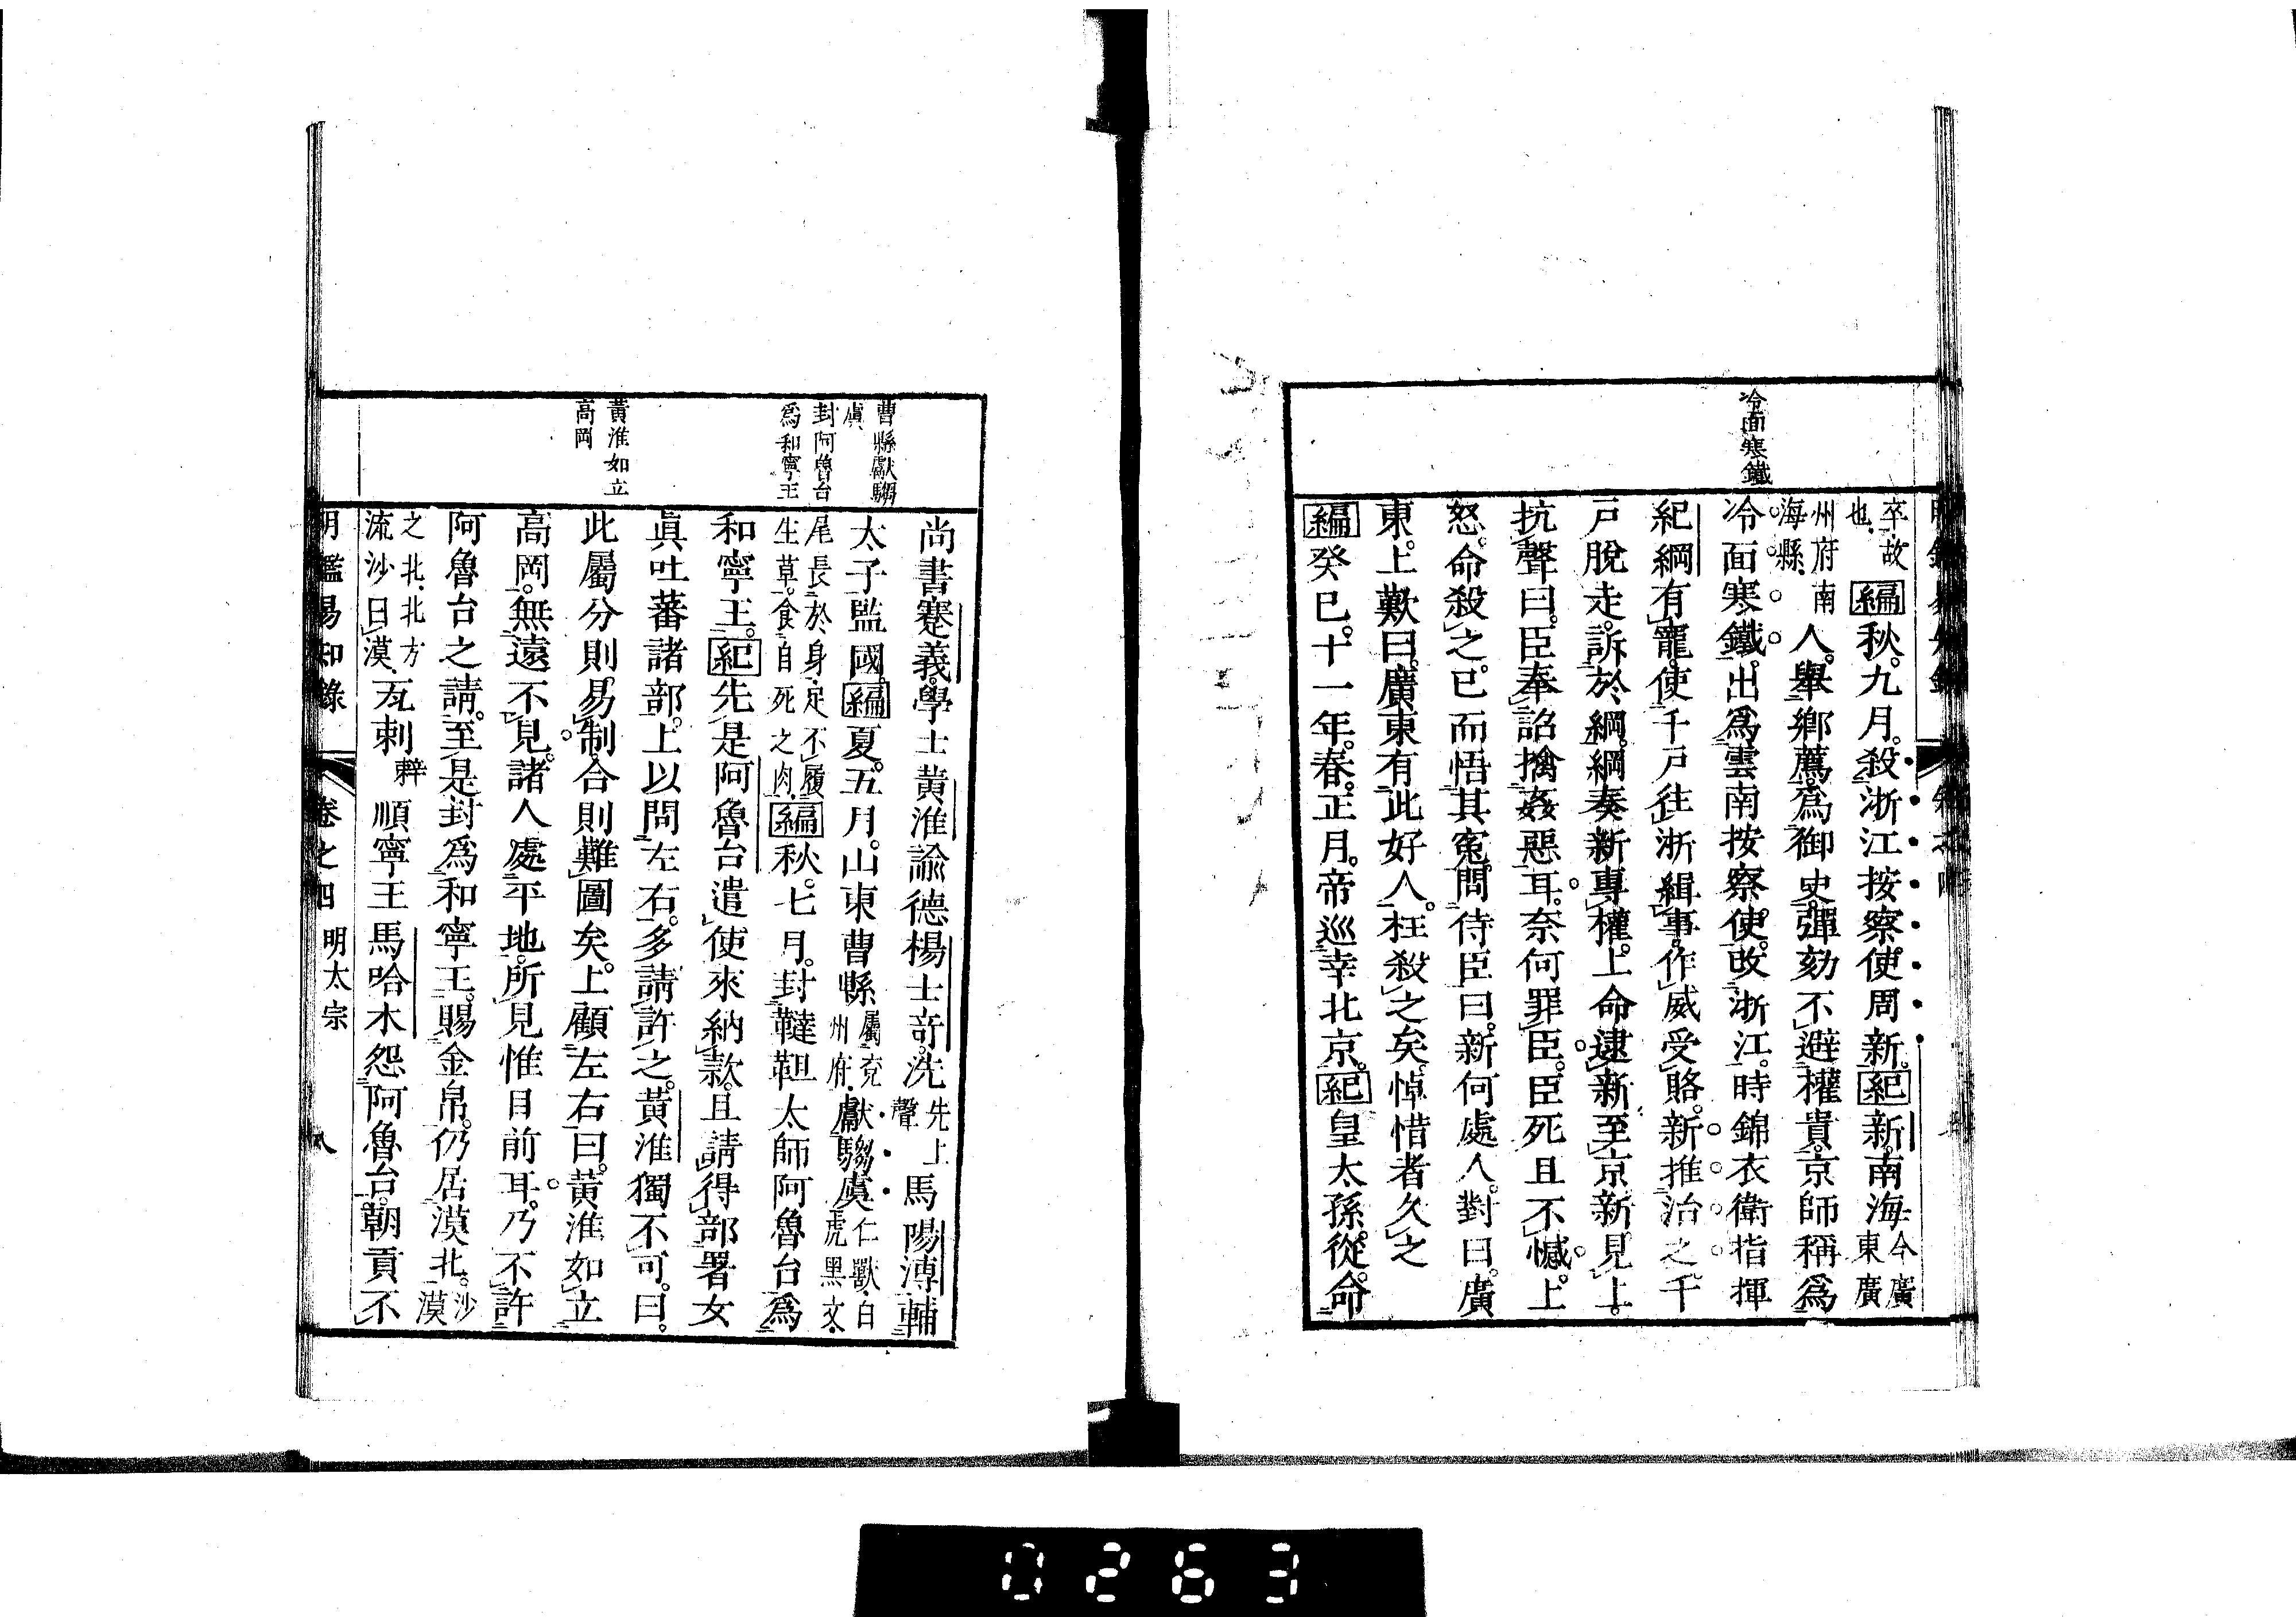 冷面寒鐵
卒故也編秋。九月。殺浙江按察使周新。紀新。南海今廣東廣
州府南海縣人。舉鄉薦。爲御史。彈劾不避權貴。京師稱爲
冷面寒鐵。出爲雲南按察使。改浙江。時錦衣衛指揮
紀綱有寵。使千戶往浙緝事。作威受賂。新推治之。千
戶脫走。訴於綱。綱奏新專權。上命逮新。至京。新見上。
抗聲曰。臣奉詔擒姦惡耳。奈何罪臣。臣死且不憾。上
怒。命殺之。已而悟其寃。問侍臣曰。新何處人。對曰。廣
東。上歎曰。廣東有此好人。枉殺之矣。悼惜者久之
編癸巳。十一年。春。正月。帝巡幸北京。紀皇太孫從。命
曹縣獻騶虞
封阿魯台爲和寧王
黃淮如立高岡
尚書蹇義。學士黃淮諭德楊士奇。洗先上聲馬陽溥輔
太子監國。編夏。五月。山東曹縣屬兗州府獻騶虞仁獸。白虎黑文。
尾長於身。足不履生草。食自死之肉。編秋。七月。封韃靼太師阿魯台爲
和寧王。紀先是阿魯台遣使來納款。且請得部署女
眞吐蕃諸部。上以問左右。多請許之。黃淮獨不可。曰。
此屬分則易制。合則難圖矣。上顧左右曰。黃淮如立
高岡。無遠不見。諸人處平地。所見惟目前耳。乃不許
阿魯台之請。至是封爲和寧王。賜金帛。仍居漠北。沙漠
之北。北方流沙曰漠。瓦剌辢順寧王馬哈木怨阿魯台。朝貢不
明鑑易知錄 卷之四 明太宗 八
0263